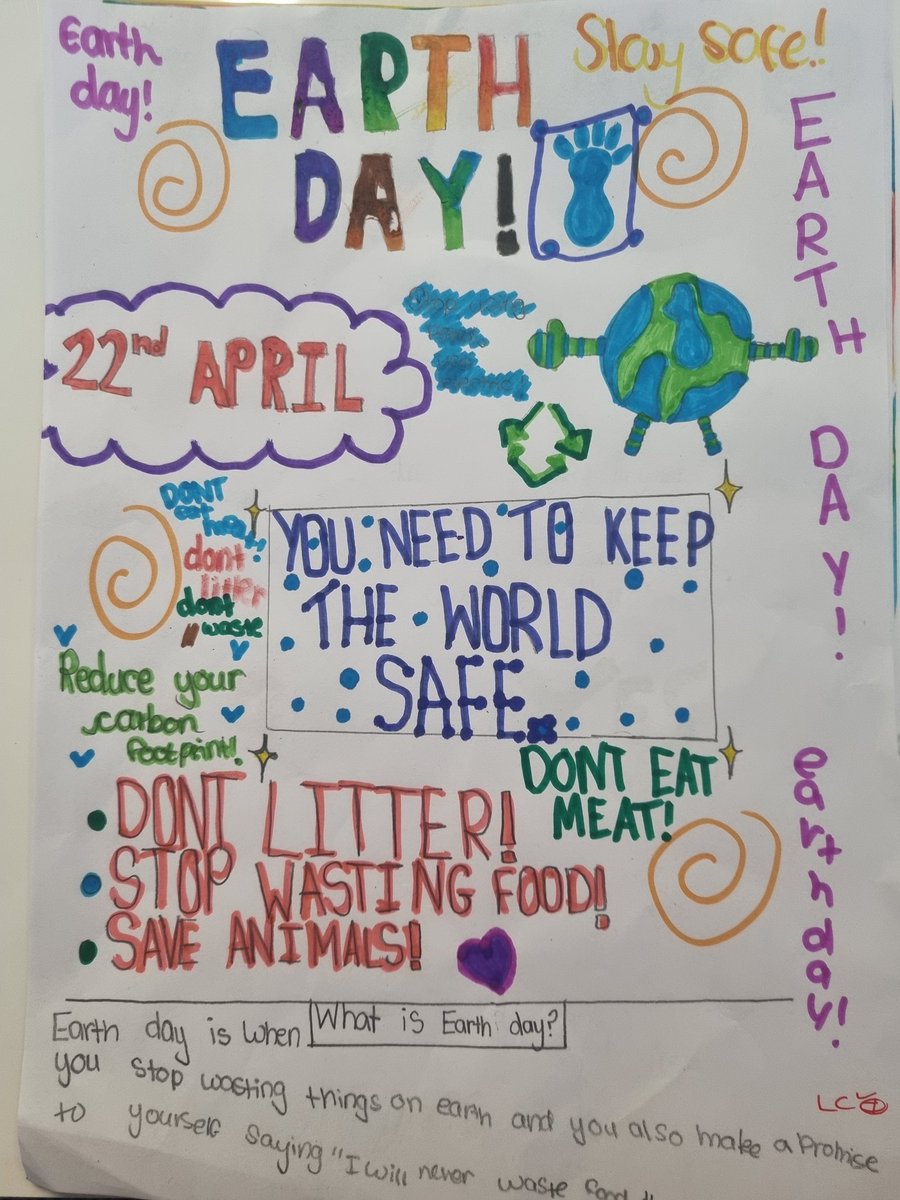 Earth
day!
EARTH
DAY!
Stay safe!!
EARTH DAY!
earth day!
22nd APRIL
DONT
eat
dont
litter
dont
waste
YOU NEED TO KEEP
THE WORLD
SAFE.
Reduce your
carbon
footprint!
DONT EAT
MEAT!
DONT LITTER!
STOP WASTING FOOD!
SAVE ANIMALS!
What is Earth day?
Earth day is when
you stop wasting things on earth and you also make a Promise
to yourself saying "I will never waste food"
LC